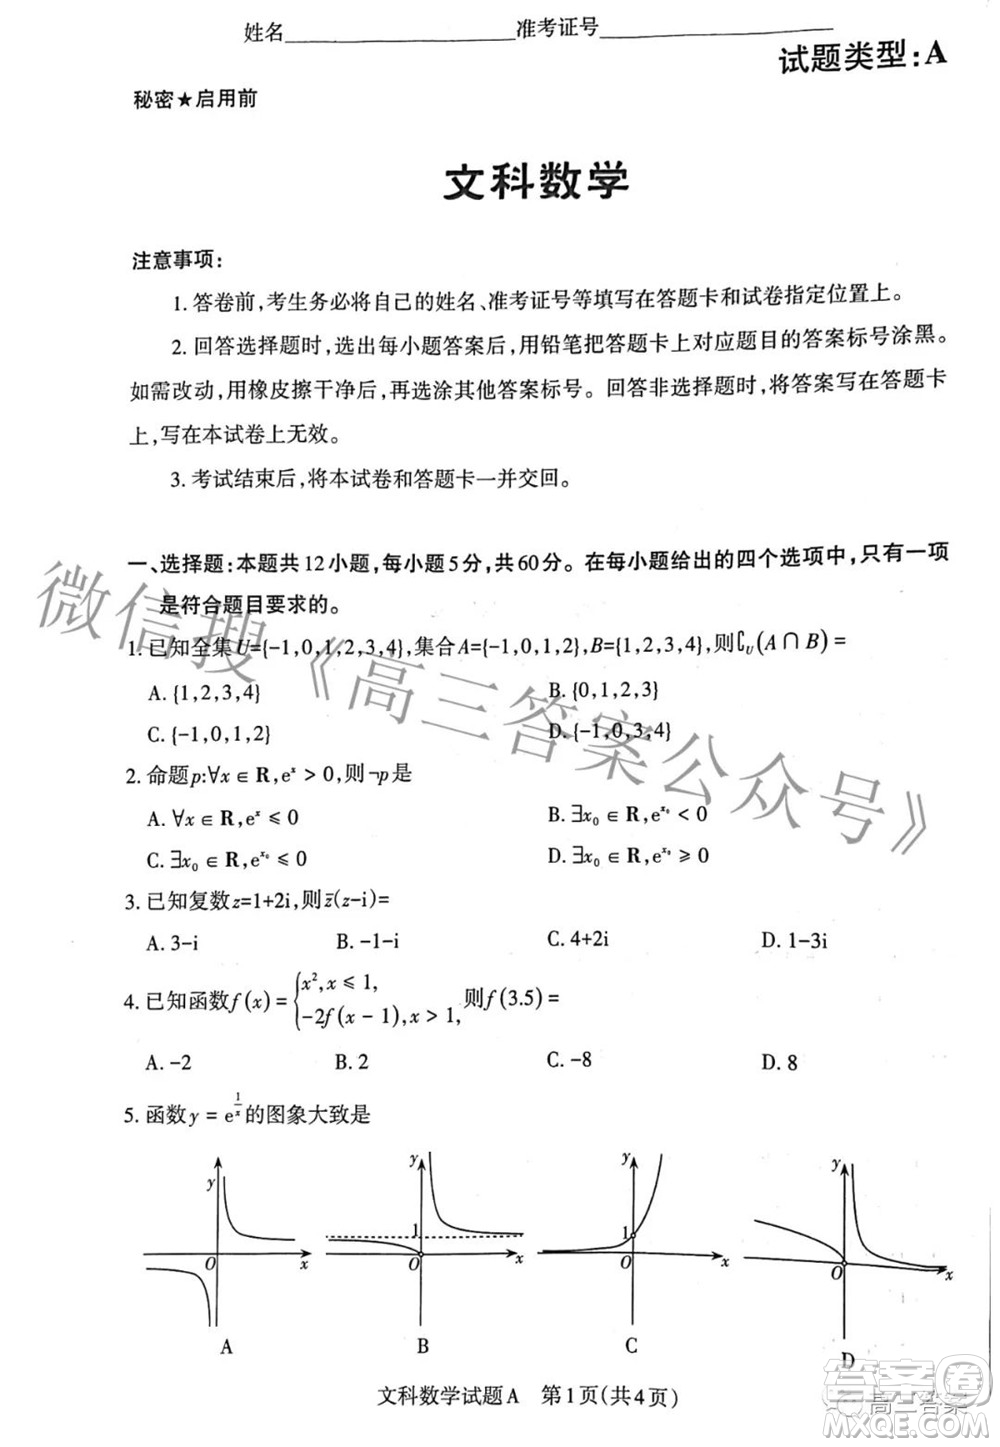 姓名________________准考证号________________
试题类型:A
秘密★启用前
文科数学
注意事项:
1. 答卷前,考生务必将自己的姓名、准考证号等填写在答题卡和试卷指定位置上。
2. 回答选择题时,选出每小题答案后,用铅笔把答题卡上对应题目的答案标号涂黑。
如需改动,用橡皮擦干净后,再选涂其他答案标号。回答非选择题时,将答案写在答题卡
上,写在本试卷上无效。
3. 考试结束后,将本试卷和答题卡一并交回。
一、选择题:本题共12小题,每小题5分,共60分。在每小题给出的四个选项中,只有一项
是符合题目要求的。
1. 已知全集U={-1,0,1,2,3,4},集合A={-1,0,1,2},B={1,2,3,4},则∁U(A∩B)=
A. {1,2,3,4} B. {0,1,2,3}
C. {-1,0,1,2} D. {-1,0,3,4}
2. 命题p:∀x∈R,eˣ>0,则¬p是
A. ∀x∈R,eˣ⩽0 B. ∃x₀∈R,e^x₀<0
C. ∃x₀∈R,e^x₀⩽0 D. ∃x₀∈R,e^x₀⩾0
3. 已知复数z=1+2i,则z̄(z-i)=
A. 3-i B. -1-i C. 4+2i D. 1-3i
4. 已知函数f(x)={x²,x⩽1, -2f(x-1),x>1, 则f(3.5)=
A. -2 B. 2 C. -8 D. 8
5. 函数y=e^(1/x)的图象大致是
y O x A
y 1 O x B
y 1 O x C
y O x D
文科数学试题A 第1页(共4页)
微信搜《高三答案公众号》
答案卷
高三答案
MXQE.COM